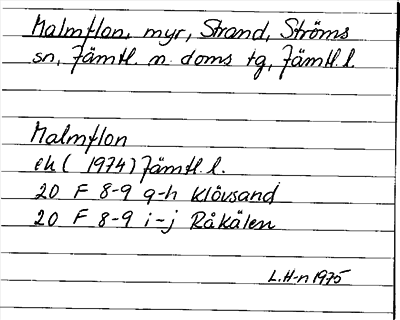 Malmflon, myr, Strand, Ströms
sn, Jämtl. n. doms tg, Jämtl. l.
Malmflon
ek (1974) Jämtl. l.
20 F 8-9 g-h Klövsand
20 F 8-9 i-j Råkälen
L.H-n 1975